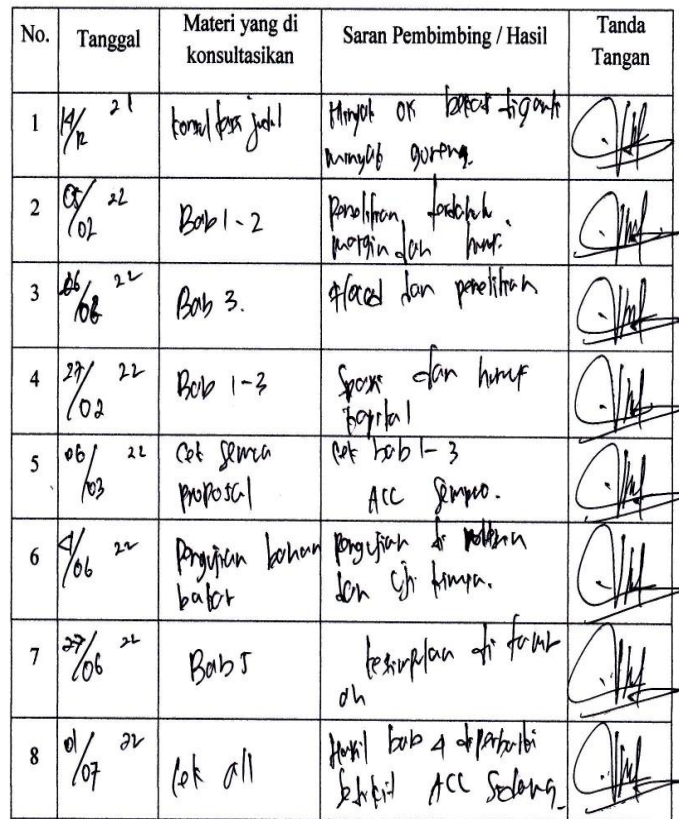 No. Tanggal Materi yang di konsultasikan Saran Pembimbing / Hasil Tanda Tangan
1 14/12 21 konsultasi judul Minyak
minyak goreng.
2 05/02 22 Bab 1-2 Penelitian
margin dan huruf.
3 22 Bab 3. dan penelitian
4 27/02 22 Bab 1-3 Spasi dan huruf
kapital
5 06/03 22 Cek semua Cek bab 1-3
proposal ACC Sempro.
6 4/06 22 Pengujian bahan Pengujian di
bakar dan Uji kimia.
7 27/06 22 Bab 5 kesimpulan di
ah
8 01/07 22 Cek all Hasil bab 4 diperbaiki
ACC Sidang.